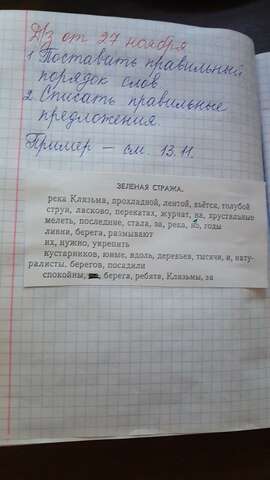 Д/з от 27 ноября
1. Поставать правильный
порядок слов
2. Списать правильные
предложения.
Пример – см. 13.11.
ЗЕЛЕНАЯ СТРАЖА.
река Клязьма, прохладной, лентой, вьётся, голубой
струи, ласково, перекатах, журчат, на, хрустальные
мелеть, последние, стала, за, река, но, годы
ливни, берега, размывают
их, нужно, укрепить
кустарников, юные, вдоль, деревьев, тысячи, и, нату-
ралисты, берегов, посадили
спокойны, берега, ребята, Клязьмы, за